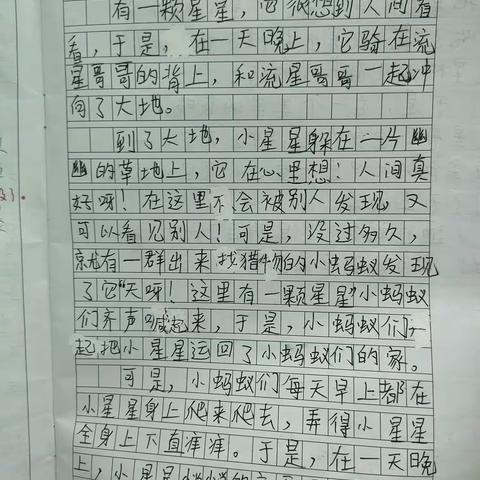 有一颗星星，它很想到人间看
看，于是，在一天晚上，它骑在流
星哥哥的背上，和流星哥哥一起冲
向了大地。
到了大地，小星星躲在一片幽
幽的草地上，它在心里想：人间真
好呀！在这里不会被别人发现，又
可以看见别人！可是，没过多久，
就有一群出来找猎物的小蚂蚁发现
了它“天呀！这里有一颗星星”小蚂蚁
们齐声喊起来，于是，小蚂蚁们一
起把小星星运回了小蚂蚁们的家。
可是，小蚂蚁们每天早上都在
小星星身上爬来爬去，弄得小星星
全身上下直痒痒。于是，在一天晚
上，小星星